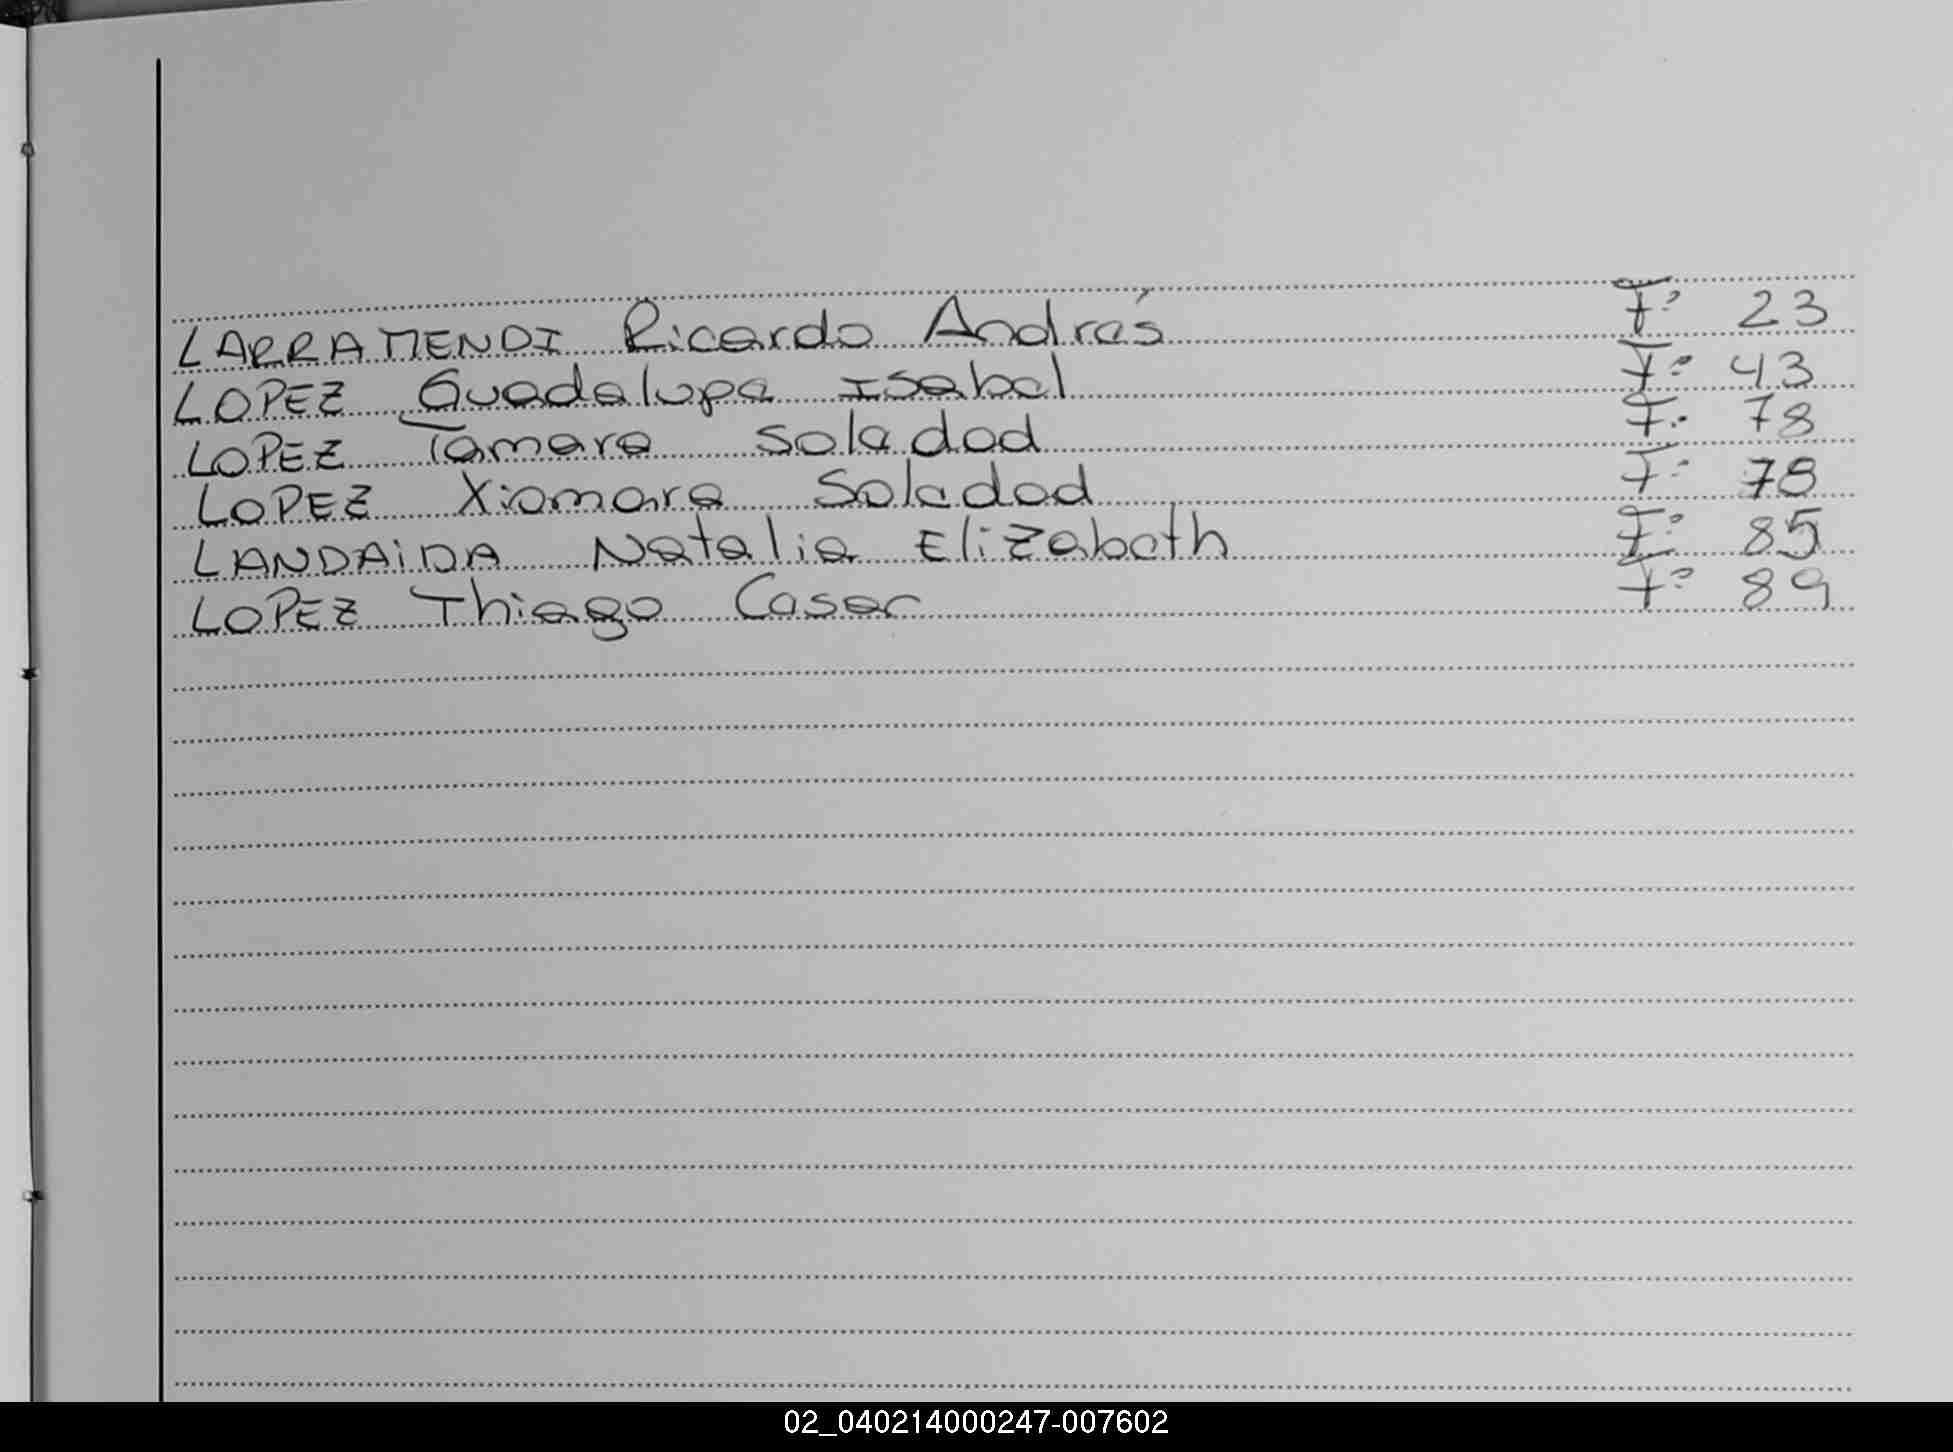 LARRAMENDI Ricardo Andrés F° 23
LOPEZ Guadalupe Isabel F° 43
LOPEZ Tamara Soledad F° 78
LOPEZ Xiomara Soledad F° 78
LANDAIDA Natalia Elizabeth F° 85
LOPEZ Thiago Cesar F° 89
02_040214000247-007602